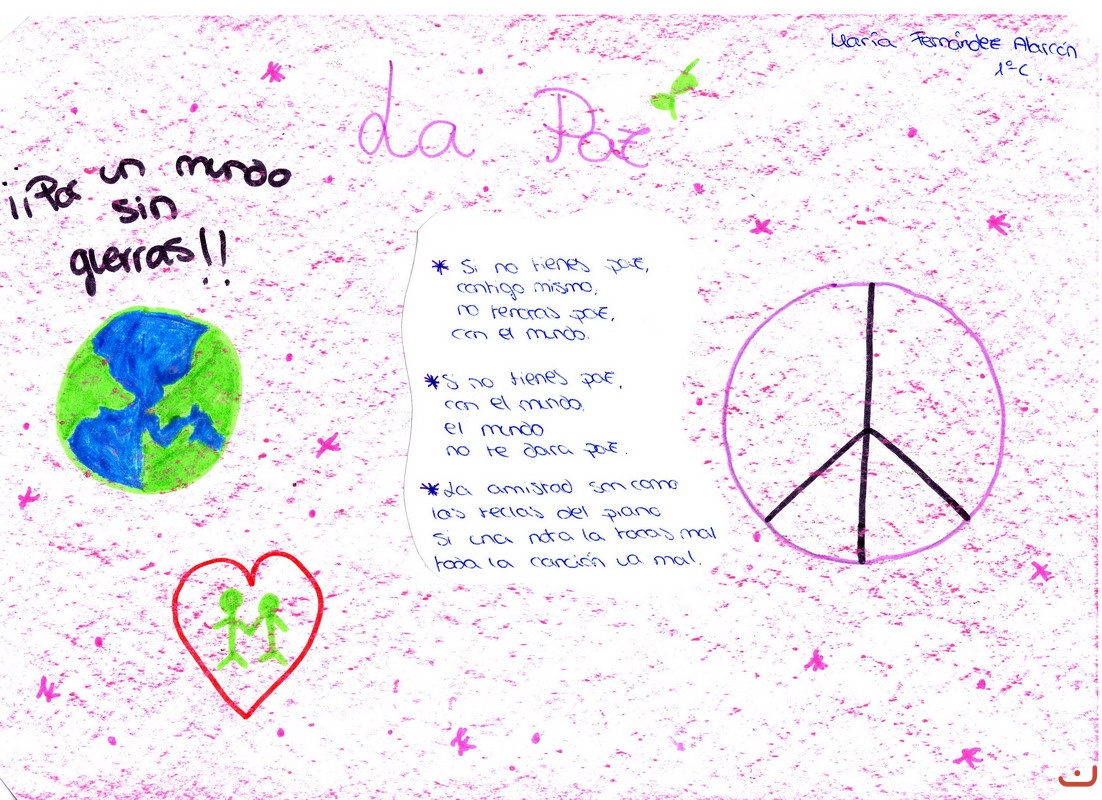 María Fernández Alarcón
1º-C.
La Paz
¡¡Por un mundo
sin
guerras!!
* Si no tienes paz,
contigo mismo,
no tendras paz,
con el mundo.
* Si no tienes paz,
con el mundo,
el mundo
no te dara paz.
* La amistad son como
las teclas del piano
si una nota la tocas mal
toda la canción va mal.